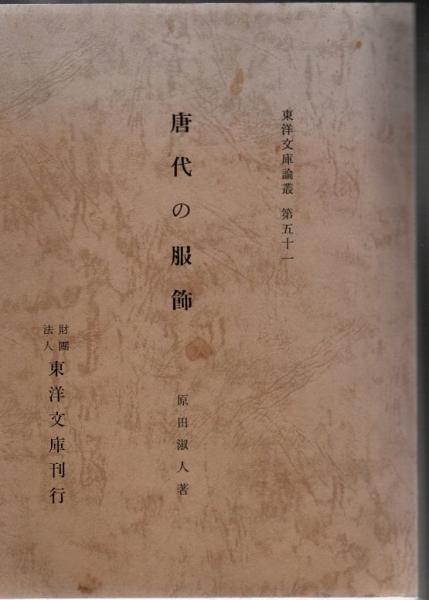 東洋文庫論叢 第五十一
唐代の服飾
原田淑人著
財團
法人
東洋文庫刊行